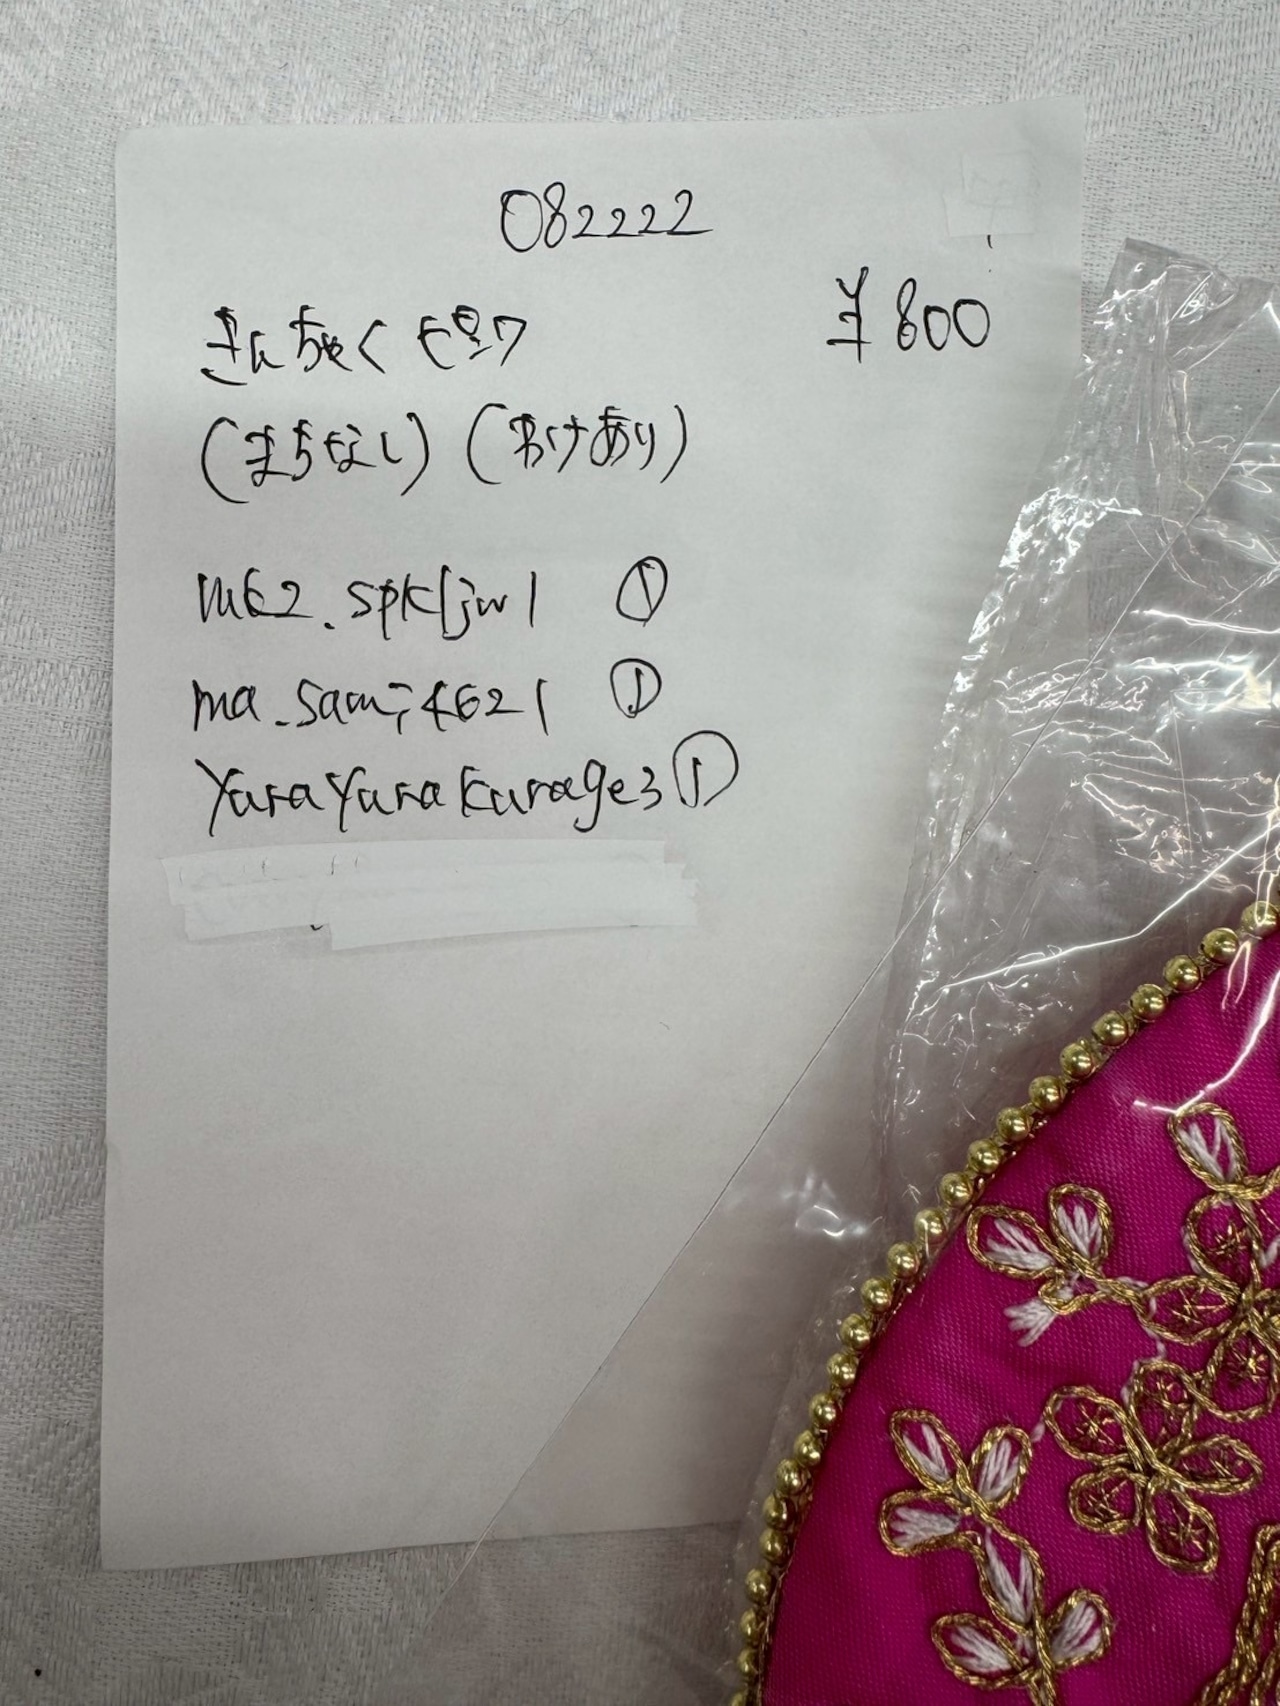 082222
¥800
きんちゃく ピンク
(まちなし) (わけあり)
m62.spkljw1 ①
ma_sami4621 ①
yurayurakurage3 ①